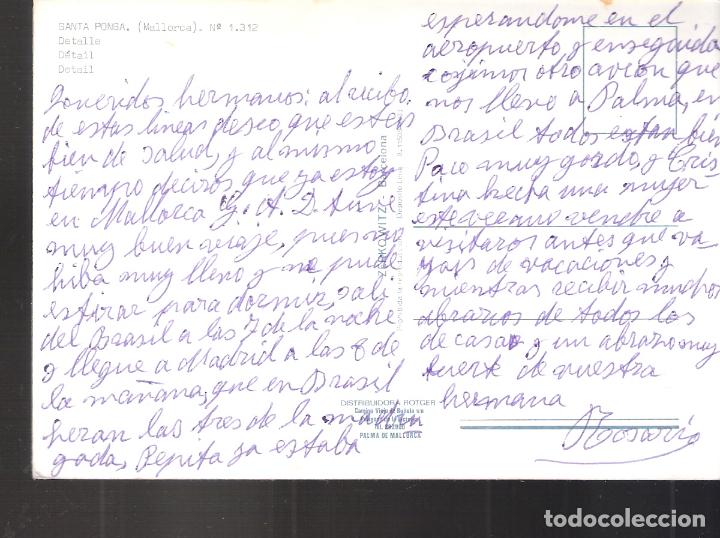 SANTA PONSA. (Mallorca). Nº 1.312
Detalle
Détail
Detail
Queridos hermanos: al recibo
de estas lineas deseo que esteis
bien de salud, y al mismo
tiempo deciros que ya estoy
en Mallorca G. A. D. tuve
muy buen viaje, pues no
hiba muy lleno y me pude
estirar para dormir, sali
del Brasil a las 7 de la noche
y llegue a Madrid a las 8 de
la mañana, que en Brasil
heran las tres de la madru
gada, Pepita ya estaba
esperandome en el
aeropuerto, y enseguida
cojimos otro avion que
nos llevo a Palma, en
Brasil todos estan bien
Paco muy gordo, y Cris
tina hecha una mujer
este verano vendre a
visitaros antes que va
yais de vacaciones, y
mientras recibir muchos
abrazos de todos los
de casa, y un abrazo muy
fuerte de vuestra
hermana
Rosario
ZERKOWITZ Barcelona
DISTRIBUIDORA ROTGER
Camino Viejo de Buñola s/n
PALMA DE MALLORCA
todocoleccion.net